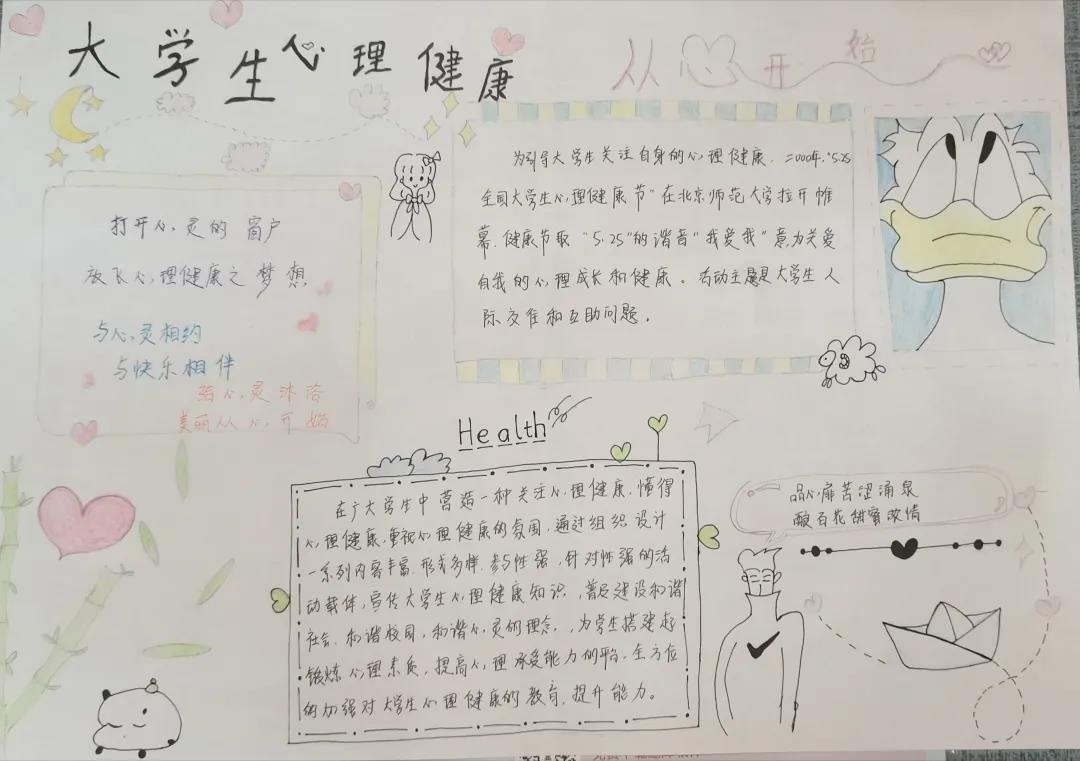 大学生心理健康
从心开始
打开心灵的窗户
放飞心理健康之梦想
与心灵相约
与快乐相伴
给心灵沐浴
美丽从心开始
为引导大学生关注自身的心理健康，二000年，"5.25
全国大学生心理健康节"在北京师范大学拉开帷
幕，健康节取"5.25"的谐音"我爱我"意为关爱
自我的心理成长和健康。活动主题是大学生人
际交往和互助问题。
Health
在广大学生中营造一种关注心理健康，懂得
心理健康，重视心理健康的氛围，通过组织设计
一系列内容丰富，形式多样，参与性强，针对性强的活
动载体，宣传大学生心理健康知识，普及建设和谐
社会，和谐校园，和谐心灵的理念，为学生搭建起
锻炼心理素质，提高心理承受能力的平台，全方位
的加强对大学生心理健康的教育，提升能力。
品心扉苦涩涌泉
酿百花甜蜜浓情